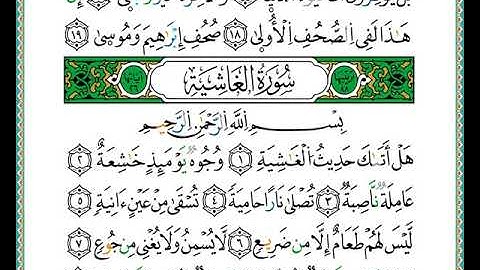 هَٰذَا لَفِي الصُّحُفِ الْأُولَىٰ ١٨ صُحُفِ إِبْرَاهِيمَ وَمُوسَىٰ ١٩
سُورَةُ الْغَاشِيَةِ
بِسْمِ اللَّهِ الرَّحْمَٰنِ الرَّحِيمِ
هَلْ أَتَاكَ حَدِيثُ الْغَاشِيَةِ ١ وُجُوهٌ يَوْمَئِذٍ خَاشِعَةٌ ٢
عَامِلَةٌ نَّاصِبَةٌ ٣ تَصْلَىٰ نَارًا حَامِيَةً ٤ تُسْقَىٰ مِنْ عَيْنٍ آنِيَةٍ ٥
لَّيْسَ لَهُمْ طَعَامٌ إِلَّا مِن ضَرِيعٍ ٦ لَّا يُسْمِنُ وَلَا يُغْنِي مِن جُوعٍ ٧